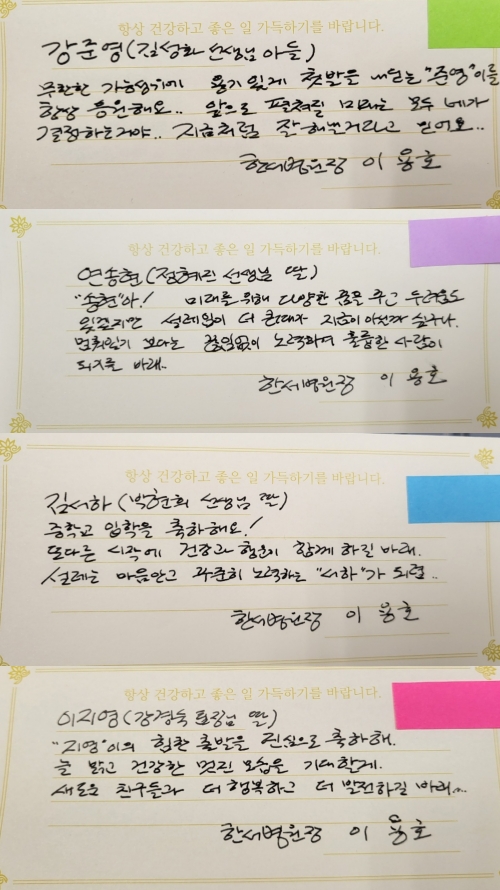 항상 건강하고 좋은 일 가득하기를 바랍니다.
강준영(김성화 선생님 아들)
무한한 가능성위에 용기있게 첫발을 내딛는 "준영"이를
항상 응원해요.. 앞으로 펼쳐질 미래는 모두 네가
결정하는거야.. 지금처럼 잘 해낼거라고 믿어요..
한서병원장 이 용호
항상 건강하고 좋은 일 가득하기를 바랍니다.
연송현(정혜진 선생님 딸)
"송현"아! 미래를 위해 다양한 꿈을 꾸고 두려움도
있겠지만 설레임이 더 큰때가 지금이 아닌가 싶구나.
멈춰있기 보다는 끊임없이 노력하여 훌륭한 사람이
되기를 바래..
한서병원장 이 용호
항상 건강하고 좋은 일 가득하기를 바랍니다.
김서하(박현희 선생님 딸)
중학교 입학을 축하해요!
또다른 시작에 건강과 행운이 함께 하길 바래.
설레는 마음안고 꾸준히 노력하는 "서하"가 되렴..
한서병원장 이 용호
항상 건강하고 좋은 일 가득하기를 바랍니다.
이지영(강경숙 팀장님 딸)
"지영"이의 힘찬 출발을 진심으로 축하해.
늘 밝고 건강한 멋진 모습을 기대할게.
새로운 친구들과 더 행복하고 더 발전하길 바래...
한서병원장 이 용호